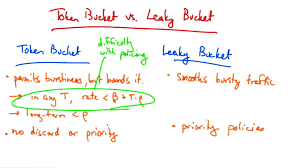 Token Bucket vs. Leaky Bucket
Token Bucket
difficulty
with policing
Leaky Bucket
• permits burstiness, but bounds it.
• smooths bursty traffic
→ in any T, rate < β + T·ρ
→ long-term < ρ
• no discard or priority
• priority policies